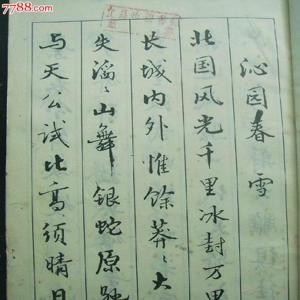 www.7788.com
沁园春 雪
北国风光千里冰封万里
长城内外惟馀莽〻大
失滔〻山舞银蛇原驰
与天公试比高须晴日